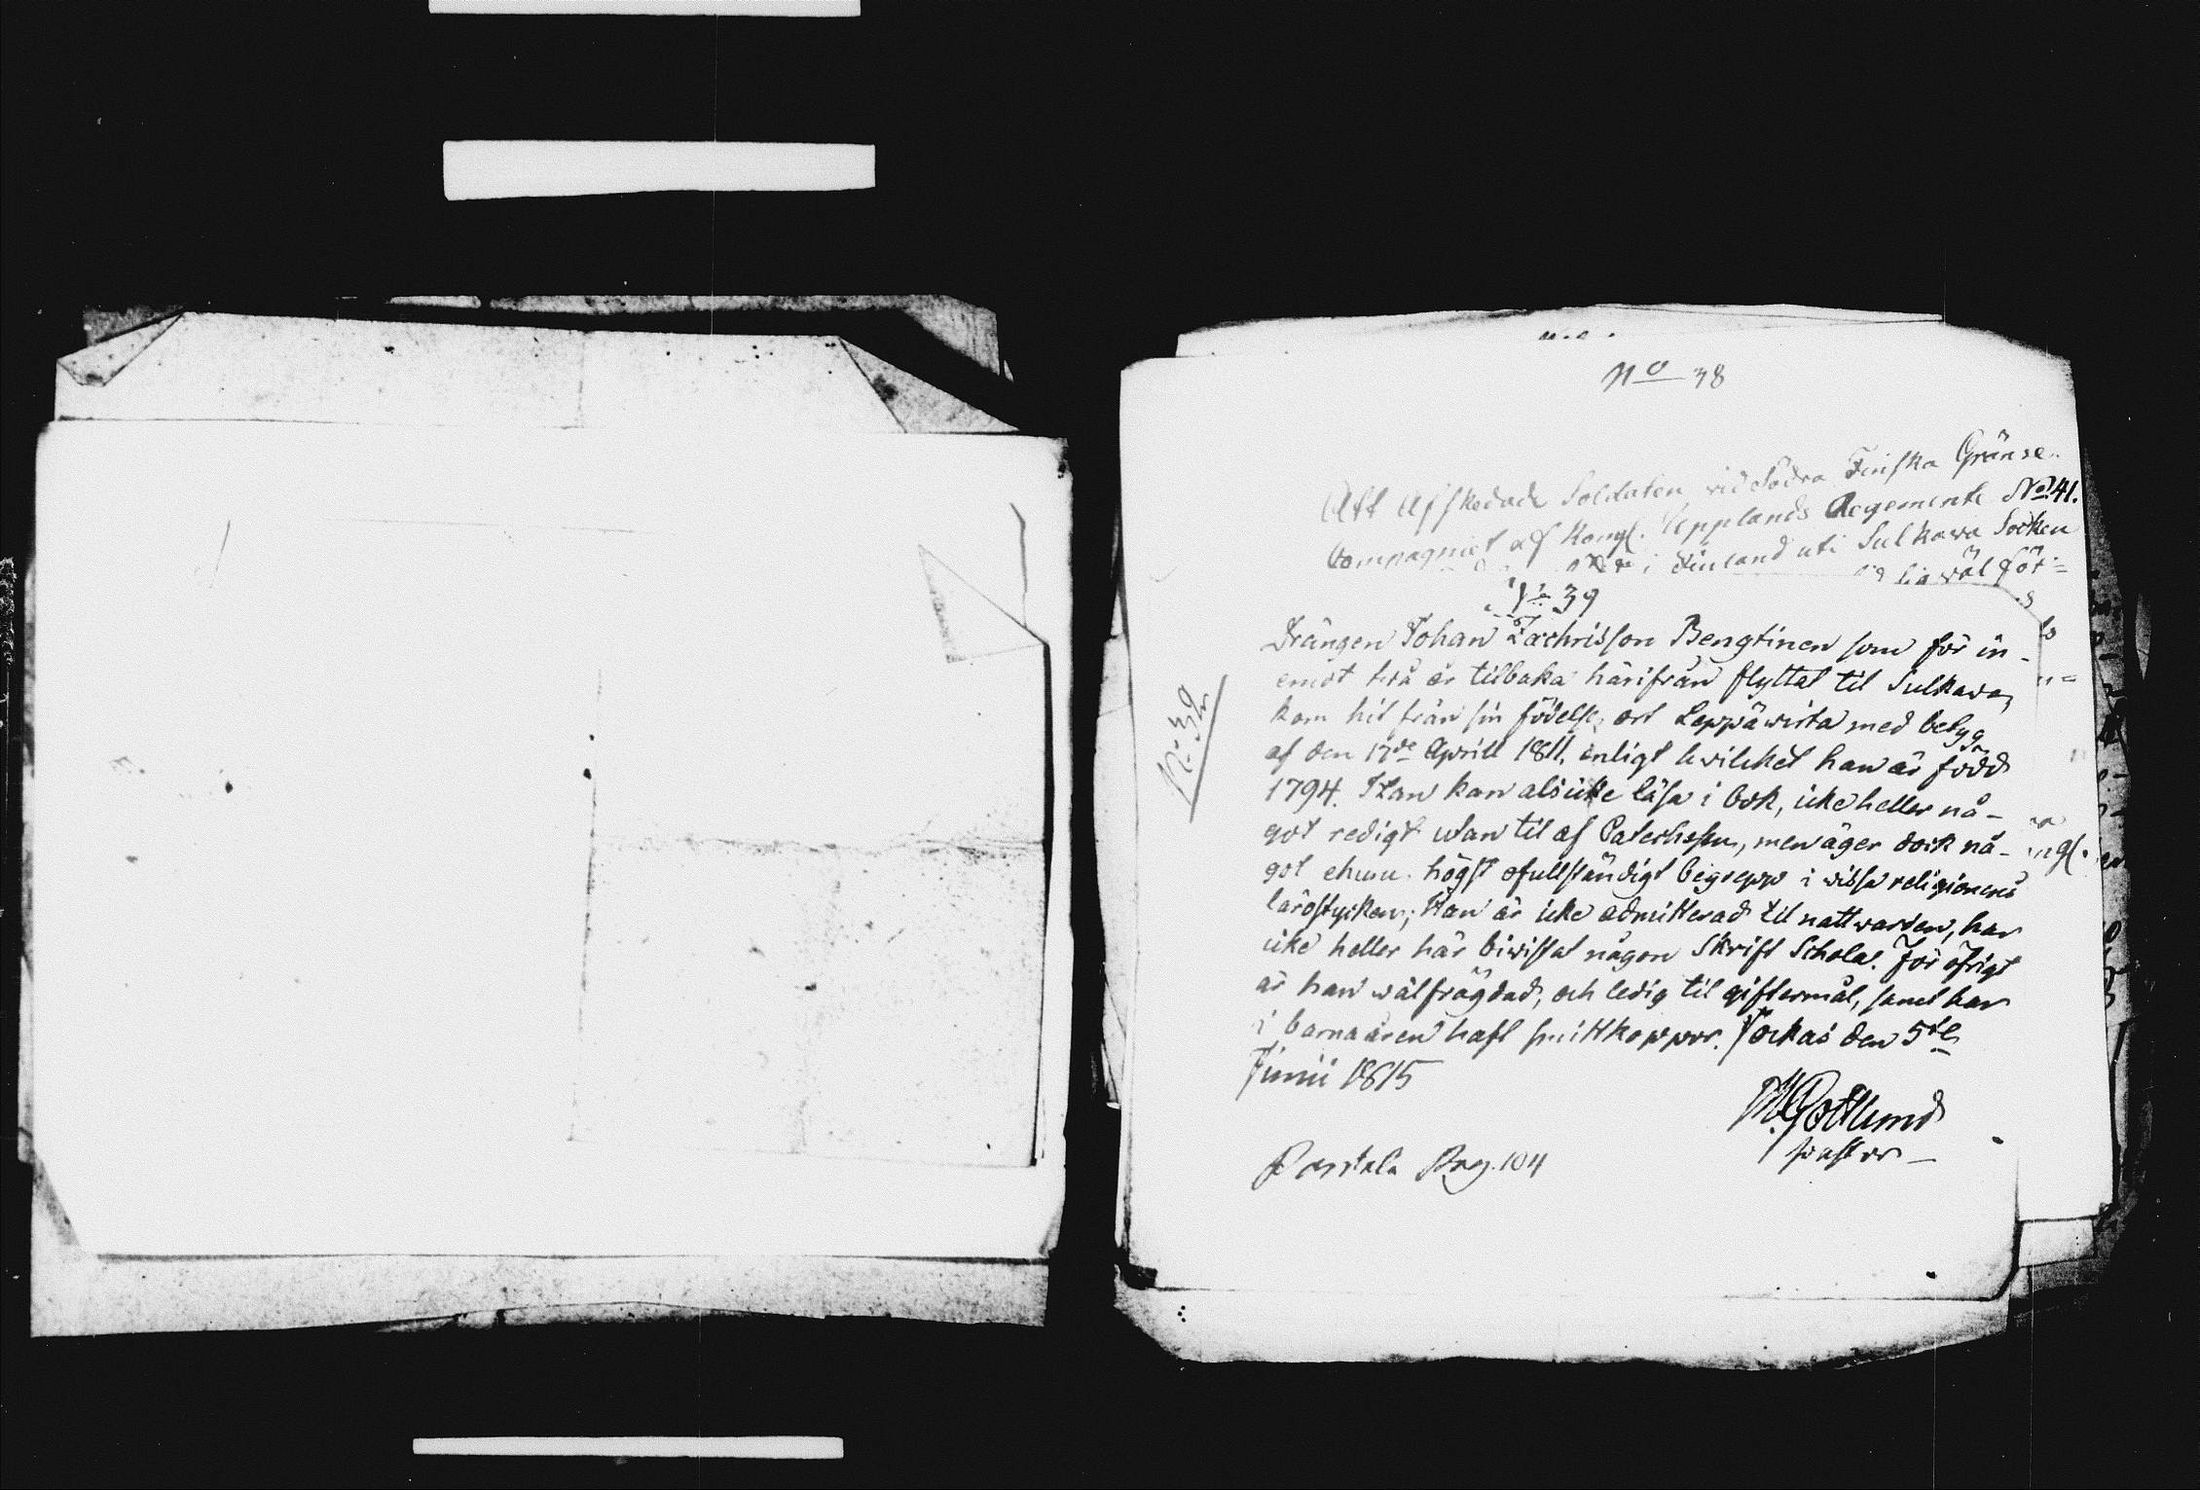 No 38
Att Afskedade Soldaten vid Södra Finska Gränse
Compagniet af Kongl. Upplands Regemente No. 41.
i Finland uti Sulkava Socken
wäl för=
No 39
Drängen Johan Zachrisson Bengtinen som för in-
emot två år tilbaka härifrån flyttat til Sulkava,
kom hit från sin födelse ort Leppäwirta med betyg
af den 17de Aprill 1811, enligt hwilcket han är född
1794. Han kan als icke läsa i bok, icke heller nå-
got redigt utan til af Catechesen, men äger dock nå-
got ehuru högst ofullständigt begrepp i wissa religionens
lärostycken; Han är icke admitterad til nattwarden, har
icke heller här biwistat någon Skrift Schola. För öfrigt
är han wälfrägdad, och ledig til giftermål, samt har
i barnaåren haft smittkoppor. Jockas den 5te
Junii 1815
M. Gottlund
pastor
Partala Pag. 104
No 39
ngl.